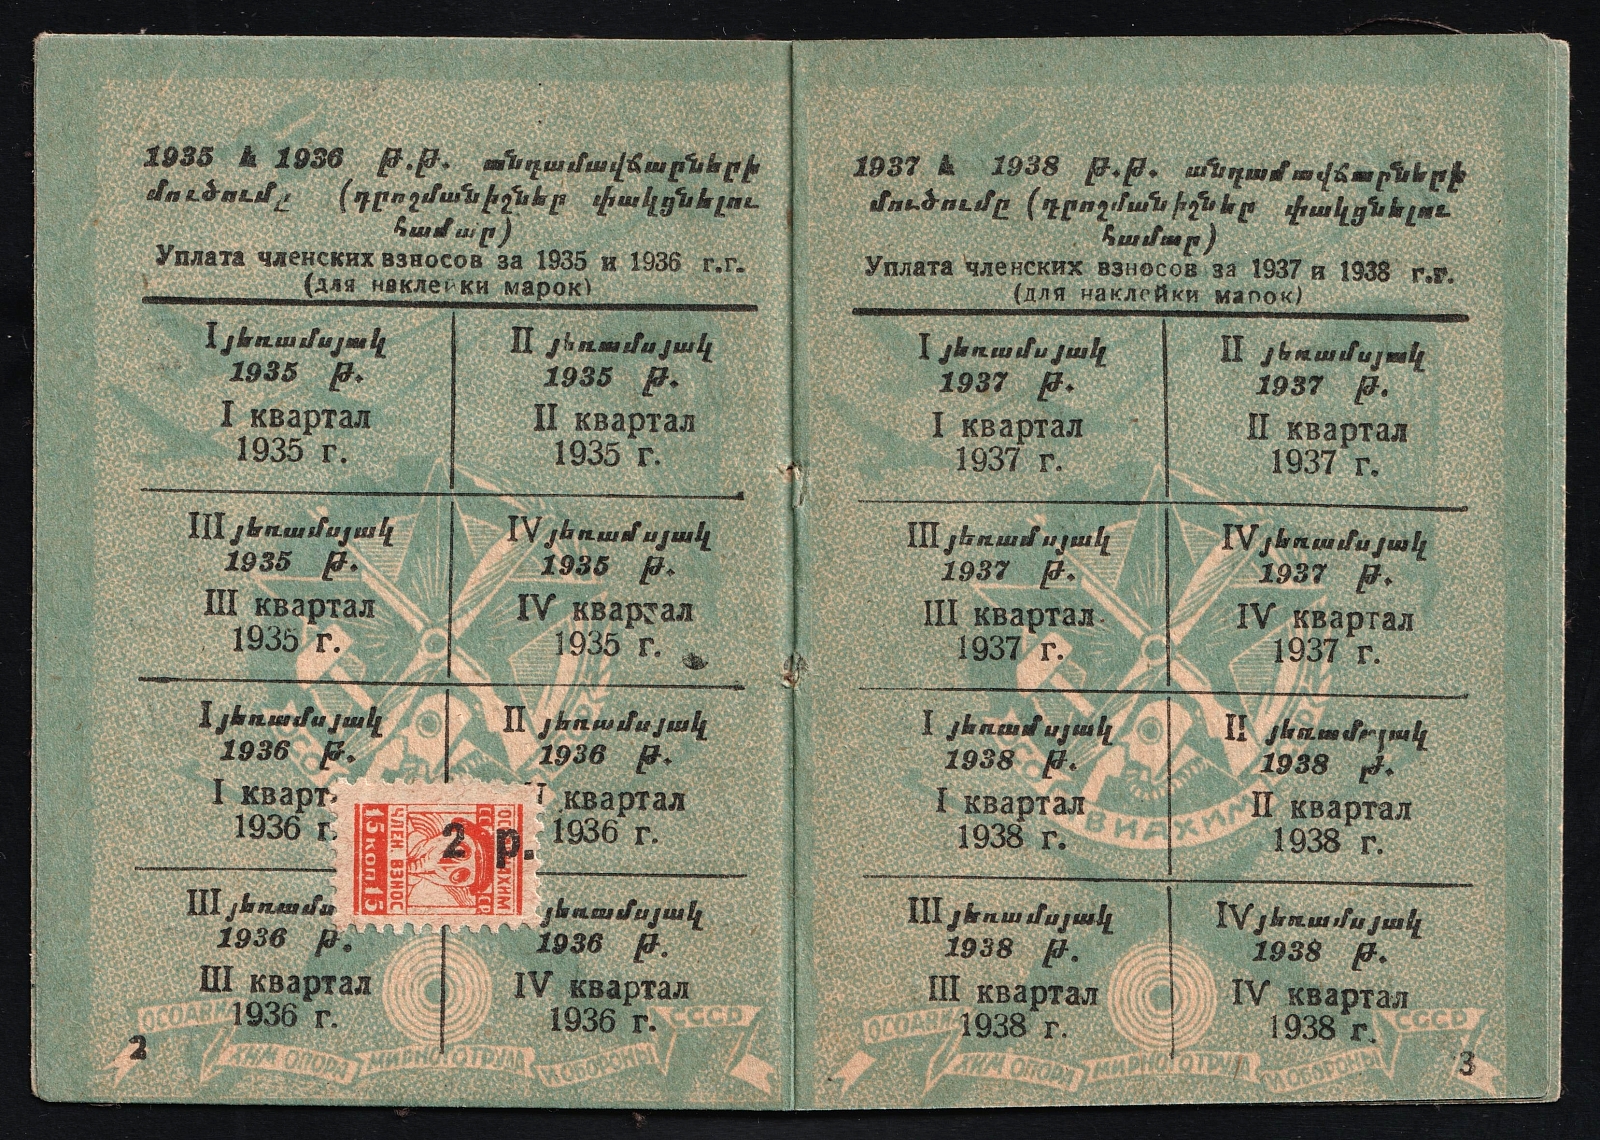 1935 և 1936 թ.թ. անդամավճարների
մուծումը (դրոշմանիշներ փակցնելու
համար)
Уплата членских взносов за 1935 и 1936 г.г.
(для наклейки марок)
I յեռամսյակ
1935 թ.
I квартал
1935 г.
II յեռամսյակ
1935 թ.
II квартал
1935 г.
III յեռամսյակ
1935 թ.
III квартал
1935 г.
IV յեռամսյակ
1935 թ.
IV квартал
1935 г.
I յեռամսյակ
1936 թ.
I кварт
1936 г.
II յեռամսյակ
1936 թ.
квартал
1936 г.
15 коп. 15
ЧЛЕН. ВЗНОС
СССР
2 р.
III յեռամս
1936 թ.
III квартал
1936 г.
յեռամսյակ
1936 թ.
IV квартал
1936 г.
ОСОАВИ
ХИМ ОПОРА
МИРНОГО ТРУДА
И ОБОРОНЫ
СССР
2
1937 և 1938 թ.թ. անդամավճարների
մուծումը (դրոշմանիշներ փակցնելու
համար)
Уплата членских взносов за 1937 и 1938 г.г.
(для наклейки марок)
I յեռամսյակ
1937 թ.
I квартал
1937 г.
II յեռամսյակ
1937 թ.
II квартал
1937 г.
III յեռամսյակ
1937 թ.
III квартал
1937 г.
IV յեռամսյակ
1937 թ.
IV квартал
1937 г.
I յեռամսյակ
1938 թ.
I квартал
1938 г.
II յեռամսյակ
1938 թ.
II квартал
1938 г.
III յեռամսյակ
1938 թ.
III квартал
1938 г.
IV յեռամսյակ
1938 թ.
IV квартал
1938 г.
ОСОАВИ
ХИМ ОПОРА
МИРНОГО ТРУДА
И ОБОРОНЫ
СССР
3